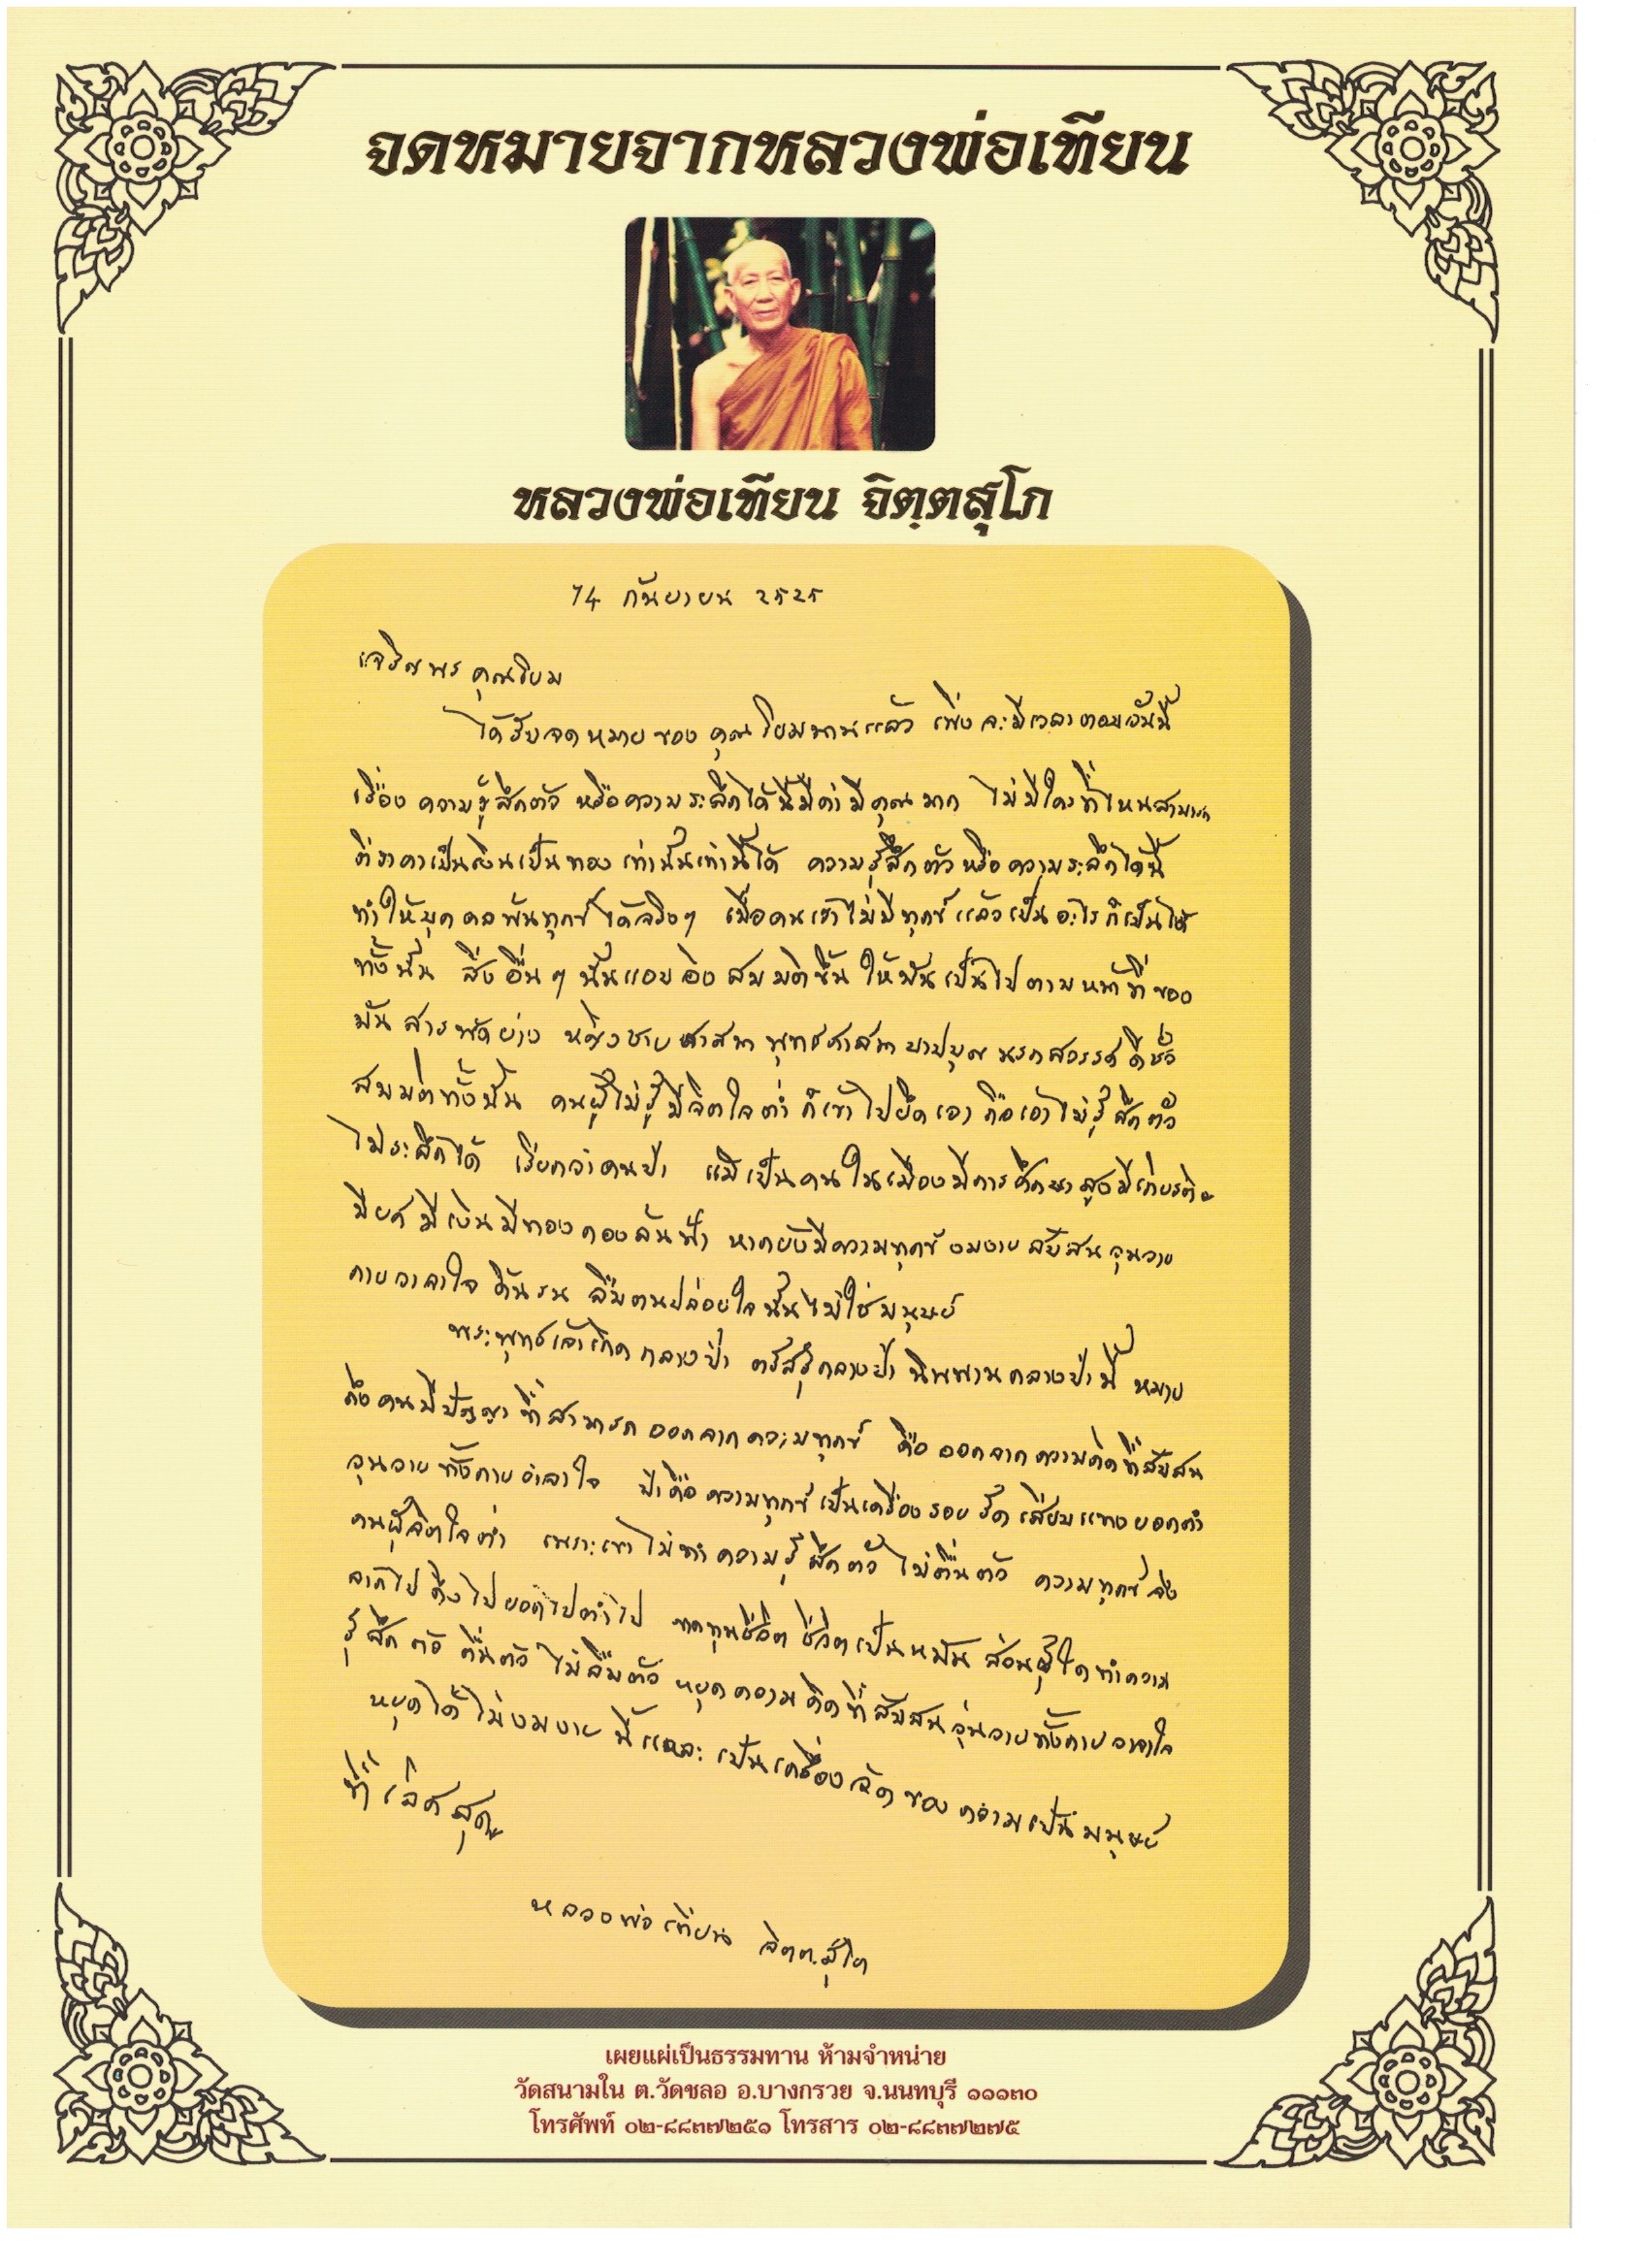 จดหมายจากหลวงพ่อเทียน
หลวงพ่อเทียน จิตฺตสุโภ
14 กันยายน 2525
เจริญพร คุณโยม
ได้รับจดหมายของคุณโยมนานแล้ว เพิ่งจะมีเวลาตอบวันนี้
เรื่องความรู้สึกตัว หรือความระลึกได้นี้มีค่ามีคุณมาก ไม่มีใครที่ไหนสามารถ
ตีราคาเป็นเงินเป็นทองเท่านั้นเท่านี้ได้ ความรู้สึกตัวหรือความระลึกได้นี้
ทำให้บุคคลพ้นทุกข์ได้จริงๆ เมื่อคนเราไม่มีทุกข์แล้วเป็นอะไรก็เป็นได้
ทั้งนั้น สิ่งอื่นๆ นั้นแอบอิงสมมติขึ้น ให้มันเป็นไปตามหน้าที่ของ
มัน สารพัดอย่าง หญิงชาย ศาสนา พุทธศาสนา บาปบุญ นรกสวรรค์ ดีชั่ว
สมมติทั้งนั้น คนผู้ไม่รู้มีจิตใจต่ำ ก็เข้าไปยึดเอา ถือเอาไม่รู้สึกตัว
ไม่ระลึกได้ เรียกว่าคนป่า แม้เป็นคนในเมืองมีการศึกษาสูงมีเกียรติ
มียศ มีเงินมีทองกองล้นฟ้า หากยังมีความทุกข์ งมงาย สับสน วุ่นวาย
กายวาจาใจ ดิ้นรน ลืมตนปล่อยใจนั้นไม่ใช่มนุษย์
พระพุทธเจ้าเกิดกลางป่า ตรัสรู้กลางป่า นิพพานกลางป่านี้ หมาย
ถึงคนมีปัญญาที่สามารถออกจากความทุกข์ คือ ออกจากความคิดที่สับสน
วุ่นวายทั้งกายวาจาใจ ป่าคือความทุกข์เป็นเครื่องร้อยรัด เสียบแทงยอกตำ
คนผู้จิตใจต่ำ เพราะเขาไม่ทำความรู้สึกตัว ไม่ตื่นตัว ความทุกข์จึง
ลากไป ดึงไป ยอกไปตำไป ชีวิตเป็นหมัน ส่วนผู้ใดทำความ
รู้สึกตัว ตื่นตัว ไม่ลืมตัว หยุดความคิดที่สับสนวุ่นวายทั้งกายวาจาใจ
หยุดได้ ไม่งมงาย นี้แหละ เป็นเครื่องวัดของความเป็นมนุษย์
ที่เลิศสุด
หลวงพ่อเทียน จิตฺต.สุโภ
เผยแผ่เป็นธรรมทาน ห้ามจำหน่าย
วัดสนามใน ต.วัดชลอ อ.บางกรวย จ.นนทบุรี ๑๑๑๓๐
โทรศัพท์ ๐๒-๘๘๓๗๒๕๑ โทรสาร ๐๒-๘๘๓๗๒๗๕